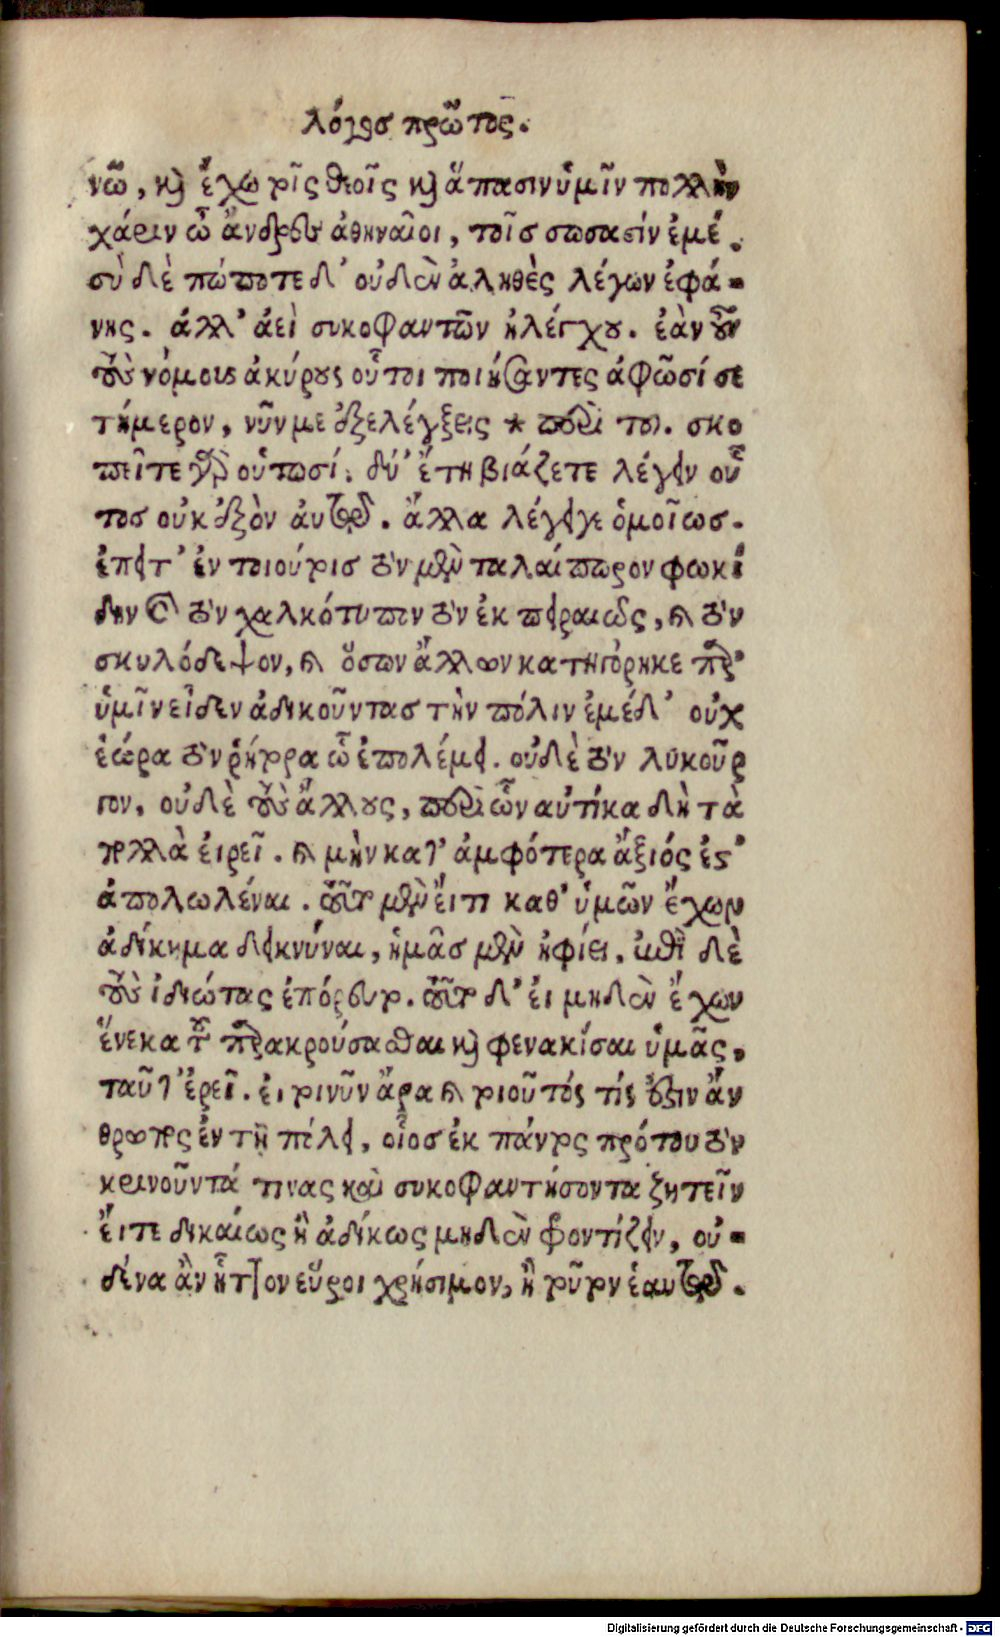 λόγος πρῶτος.
νῶ, καὶ ἔχω χάρις θεοῖς καὶ ἅπασιν ὑμῖν πολλὴν
χάριν ὦ ἄνδρες ἀθηναῖοι, τοῖς σώσασίν ἐμέ.
σὺ δὲ πώποτε δ' οὐδὲν ἀληθὲς λέγων ἐφά-
νης. ἀλλ' ἀεὶ συκοφαντῶν ἠλέγχου. ἐὰν οὖν
τοὺς νόμους ἀκύρους οὗτοι ποιήσαντες ἀφῶσί σε
τήμερον, νῦν με ἐξελέγξεις * περὶ του. σκο
πεῖτε γὰρ οὑτωσί. δύ' ἔτη βιάζετε λέγειν οὗ
τος οὐκ ἐξὸν αὐτῷ. ἀλλα λέγειγε ὁμοίως.
ἐπειτ' ἐν τοιούτοις τὸν μὲν ταλαίπωρον φωκί
δην καὶ τὸν χαλκότυπον τὸν ἐκ πειραιῶς, καὶ τὸν
σκυλόδεψον, καὶ ὅσων ἄλλων κατηγόρηκε πρὸς
ὑμῖν εἶδεν ἀδικοῦντας τὴν πόλιν ἐμέ δ' οὐχ
ἑώρα τὸν ῥήτορα ᾧ ἐπολέμει. οὐδὲ τὸν λυκοῦρ
γον, οὐδὲ τοὺς ἄλλους, περὶ ὧν αὐτίκα δὴ τὰ
πολλὰ ἐιρεῖ. καὶ μὴν κατ' ἀμφότερα ἄξιός ἐς'
ἀπολωλέναι. τοῦτο μὲν ἔιτι καθ' ὑμῶν ἔχων
ἀδίκημα δεικνύναι, ἡμᾶς μὲν ἠφίει, ἐπὶ δὲ
τοὺς ἰδιώτας ἐπόρευτο. τοῦτο δ' ἐι μηδὲν ἔχων
ἕνεκα τοῦ παρακρούσασθαι καὶ φενακίσαι ὑμᾶς,
ταῦτ' ἐρεῖ. ἐι τοινῦν ἄρα καὶ τοιοῦτός τίς ἐστιν ἄν
θρωπος ἐν τῇ πόλει, οἷος ἐκ πάντος πρότου τὸν
κρινοῦντά τινας καὶ συκοφαντήσοντα ζητεῖν
ἔιτε δικαίως ἢ ἀδίκως μηδὲν φροντίζειν, οὐ-
δένα ἂν ἧττον εὕροι χρήσιμον, ἢ τοῦτον ἑαυτῷ.
Digitalisierung gefördert durch die Deutsche Forschungsgemeinschaft - DFG